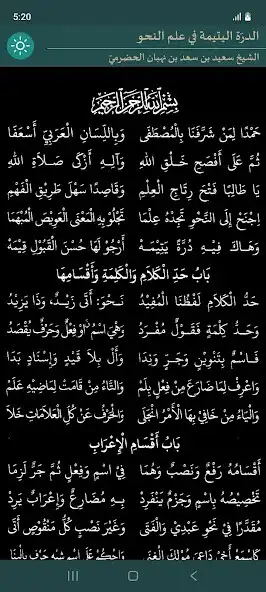 5:20
الدرّة اليتيمة في علم النحو
الشيخ سعيد بن سعد بن نبهان الحضرميّ
بِسْمِ اللَّهِ الرَّحْمَنِ الرَّحِيمِ
حَمْدًا لِمَنْ شَرَّفَنَا بِالْمُصْطَفَى وَبِاللِّسَانِ الْعَرَبِيِّ أَسْعَفَا
ثُمَّ عَلَى أَفْصَحِ خَلْقِ اللهِ وَآلِهِ أَزْكَى صَلَاةِ اللهِ
يَا طَالِبًا فَتْحَ رِتَاجِ الْعِلْمِ وَقَاصِدًا سَهْلَ طَرِيقِ الْفَهْمِ
اِجْنَحْ إِلَى النَّحْوِ تَجِدْهُ عِلْمَا تَجْلُو بِهِ الْمَعْنَى الْعَوِيصَ الْمُبْهَمَا
وَهَاكَ فِيهِ دُرَّةً يَتِيْمَهْ أَرْجُو لَهَا حُسْنَ الْقَبُوْلِ قِيْمَهْ
بَابُ حَدِّ الْكَلَامِ وَالْكَلِمَةِ وَأَقْسَامِهَا
حَدُّ الْكَلَامِ لَفْظُنَا الْمُفِيْدُ نَحْوُ: أَتَى زَيْدٌ، وَذَا يَزِيْدُ
وَحَدُّ كِلْمَةٍ فَقَوْلٌ مُفْرَدُ وَهْيَ اسْمٌ اوْ فِعْلٌ وَحَرْفٌ يُقْصَدُ
فَاسْمٌ بِتَنْوِيْنٍ وَجَرٍّ وَنِدَا وَأَلْ بِلَا قَيْدٍ وَإِسْنَادٍ بَدَا
وَاعْرِفْ لِمَا ضَارَعَ مِنْ فِعْلٍ بِلَمْ وَالتَّاءُ مِنْ قَامَتْ لِمَاضِيْهِ عَلَمْ
وَالْيَاءُ مِنْ خَافِي بِهَا الْأَمْرُ انْجَلَى وَالْحَرْفُ عَنْ كُلِّ الْعَلَامَاتِ خَلَا
بَابُ أَقْسَامِ الْإِعْرَابِ
أَقْسَامُهُ رَفْعٌ وَنَصْبٌ وَهُمَا فِي اسْمٍ وَفِعْلٍ ثُمَّ جَرٌّ لَزِمَا
تَخْصِيْصُهُ بِاسْمٍ وَجَزْمٌ يَنْفَرِدْ بِهِ مُضَارِعٌ وَإِعْرَابٌ يَرِدْ
مُقَدَّرًا فِي نَحْوِ عَبْدِيْ وَالْفَتَى وَغَيْرَ نَصْبٍ كُلُّ مَنْقُوْصٍ أَتَى